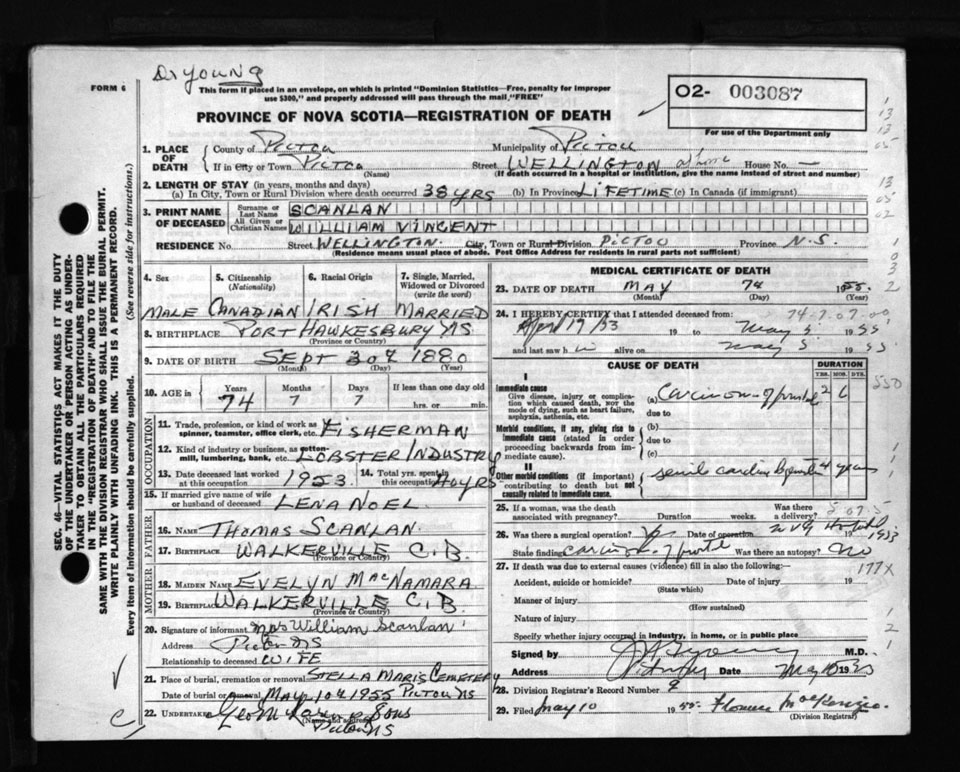 Dr YOUNG
FORM 6
This form if placed in an envelope, on which is printed "Dominion Statistics—Free, penalty for improper
use $300," and properly addressed will pass through the mail "FREE"
O2- 003087
For use of the Department only
PROVINCE OF NOVA SCOTIA—REGISTRATION OF DEATH
SEC. 46—VITAL STATISTICS ACT MAKES IT THE DUTY
OF THE UNDERTAKER OR PERSON ACTING AS UNDERTAKER TO OBTAIN ALL THE PARTICULARS REQUIRED
IN THE "REGISTRATION OF DEATH" AND TO FILE THE
SAME WITH THE DIVISION REGISTRAR WHO SHALL ISSUE THE BURIAL PERMIT.
WRITE PLAINLY WITH UNFADING INK. THIS IS A PERMANENT RECORD.
Every item of information should be carefully supplied. (See reverse side for instructions.)
1. PLACE OF DEATH
County of PICTOU Municipality of PICTOU
If in City or Town PICTOU (Name) Street WELLINGTON at home House No. —
(If death occurred in a hospital or institution, give the name instead of street and number)
2. LENGTH OF STAY (in years, months and days)
(a) In City, Town or Rural Division where death occurred 38 YRS (b) In Province LIFETIME (c) In Canada (if immigrant)
3. PRINT NAME OF DECEASED
Surname or Last Name SCANLAN
All Given or Christian Names WILLIAM VINCENT
RESIDENCE No. Street WELLINGTON. City, Town or Rural Division PICTOU Province N.S.
(Residence means usual place of abode. Post Office Address for residents in rural parts not sufficient)
4. Sex 5. Citizenship (Nationality) 6. Racial Origin 7. Single, Married, Widowed or Divorced (write the word)
MALE CANADIAN IRISH MARRIED
8. BIRTHPLACE PORT HAWKESBURY NS
(Province or Country)
9. DATE OF BIRTH SEPT 30th 1880
(Month) (Day) (Year)
10. AGE in Years Months Days If less than one day old
74 7 7 hrs. or min.
OCCUPATION
11. Trade, profession, or kind of work as spinner, teamster, office clerk, etc. FISHERMAN
12. Kind of industry or business, as cotton-mill, lumbering, bank, etc. LOBSTER INDUSTRY
13. Date deceased last worked at this occupation 1953 14. Total yrs. spent in this occupation 40 YRS
15. If married give name of wife or husband of deceased LENA NOEL
FATHER
16. NAME THOMAS SCANLAN.
17. BIRTHPLACE WALKERVILLE C.B.
(Province or Country)
MOTHER
18. MAIDEN NAME EVELYN MACNAMARA
19. BIRTHPLACE WALKERVILLE C.B.
(Province or Country)
20. Signature of informant Mrs William Scanlan
Address Pictou NS
Relationship to deceased WIFE
21. Place of burial, cremation or removal STELLA MARIS CEMETERY
Date of burial or removal MAY 10th 1955 PICTOU NS
22. Undertaker & Sons
(Name and address) Pictou NS
MEDICAL CERTIFICATE OF DEATH
23. DATE OF DEATH MAY 7th 1955.
(Month) (Day) (Year)
24. I HEREBY CERTIFY that I attended deceased from:
April 19/53 19 to May 5 1955
and last saw him alive on May 5 1955
CAUSE OF DEATH DURATION
YRS. MOS. DYS.
I
Immediate cause
Give disease, injury or complication which caused death, not the mode of dying, such as heart failure, asphyxia, asthenia, etc.
(a) Carcinoma of prostate 2 6
due to
Morbid conditions, if any, giving rise to immediate cause (stated in order proceeding backwards from immediate cause).
(b)
due to
(c)
II
Other morbid conditions (if important) contributing to death but not causally related to immediate cause.
senile 4 years
25. If a woman, was the death associated with pregnancy? Duration weeks. Was there a delivery?
26. Was there a surgical operation? Date of operation 1953
State finding carcinoma of prostate Was there an autopsy? NO
27. If death was due to external causes (violence) fill in also the following: 177X
Accident, suicide or homicide? Date of injury 19
(State which)
Manner of injury
(How sustained)
Nature of injury
Specify whether injury occurred in industry, in home, or in public place
Signed by Young M.D.
Address Date May 10 1955
28. Division Registrar's Record Number 9
29. Filed May 10 1955. Florence MacKenzie.
(Division Registrar)